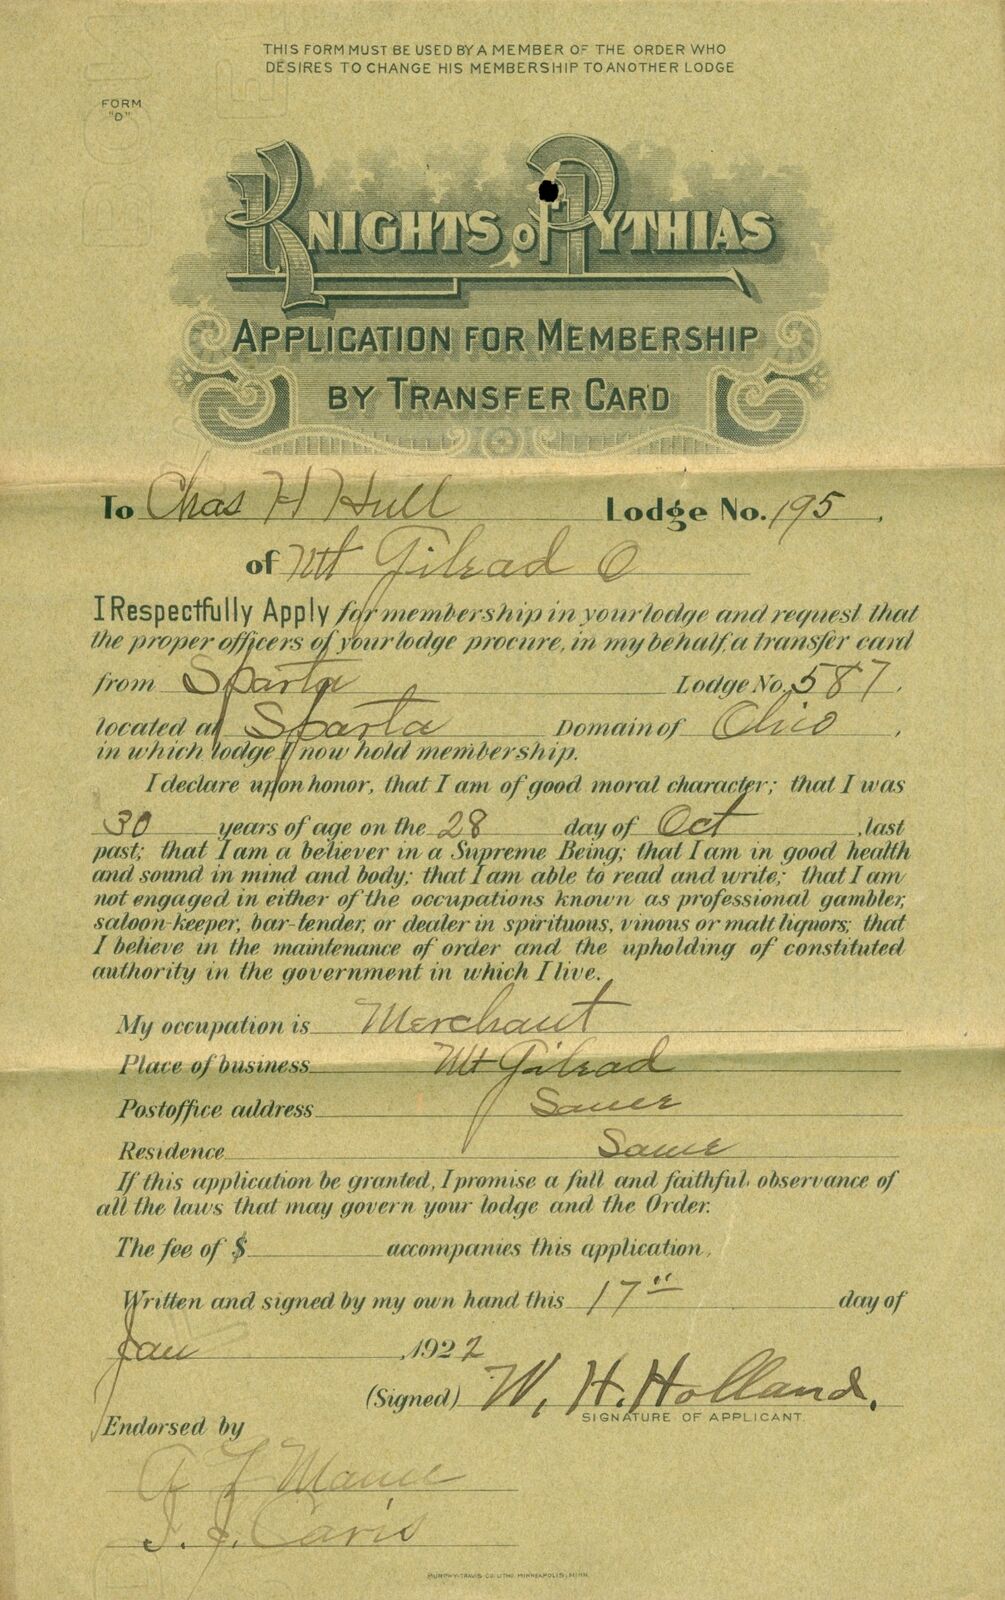 THIS FORM MUST BE USED BY A MEMBER OF THE ORDER WHO
DESIRES TO CHANGE HIS MEMBERSHIP TO ANOTHER LODGE
FORM
"D"
KNIGHTS of PYTHIAS
APPLICATION FOR MEMBERSHIP
BY TRANSFER CARD
To Chas H Hull Lodge No. 195,
of Mt Gilead O
I Respectfully Apply for membership in your lodge and request that
the proper officers of your lodge procure, in my behalf, a transfer card
from Sparta Lodge No. 587,
located at Sparta Domain of Ohio,
in which lodge I now hold membership.
I declare upon honor, that I am of good moral character; that I was
30 years of age on the 28 day of Oct, last
past; that I am a believer in a Supreme Being; that I am in good health
and sound in mind and body; that I am able to read and write; that I am
not engaged in either of the occupations known as professional gambler,
saloon-keeper, bar-tender, or dealer in spirituous, vinous or malt liquors; that
I believe in the maintenance of order and the upholding of constituted
authority in the government in which I live.
My occupation is Merchant
Place of business Mt Gilead
Postoffice address Same
Residence Same
If this application be granted, I promise a full and faithful observance of
all the laws that may govern your lodge and the Order.
The fee of $ accompanies this application.
Written and signed by my own hand this 17" day of
Jan, 1922
(Signed) W. H. Holland.
SIGNATURE OF APPLICANT.
Endorsed by
J. J. Caris
MURPHY-TRAVIS CO. LITHO. MINNEAPOLIS, MINN.